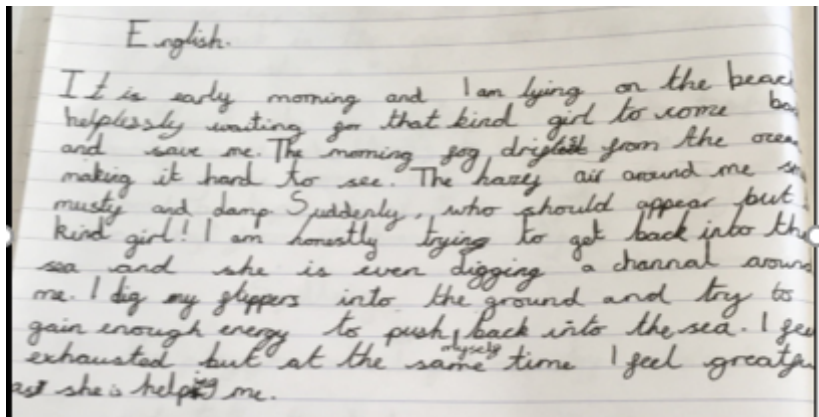 English.
It is early morning and I am lying on the beac
helplessly waiting for that kind girl to come ba
and save me. The morning fog drifts from the ocea
making it hard to see. The hazey air around me s
musty and damp Suddenly, who should appear but
kind girl! I am honestly trying to get back into the
sea and she is even digging a channal around
me. I dig my flippers into the ground and try to
gain enough energy to push myself back into the sea. I fee
exhausted but at the same time I feel greatfu
as she is helping me.